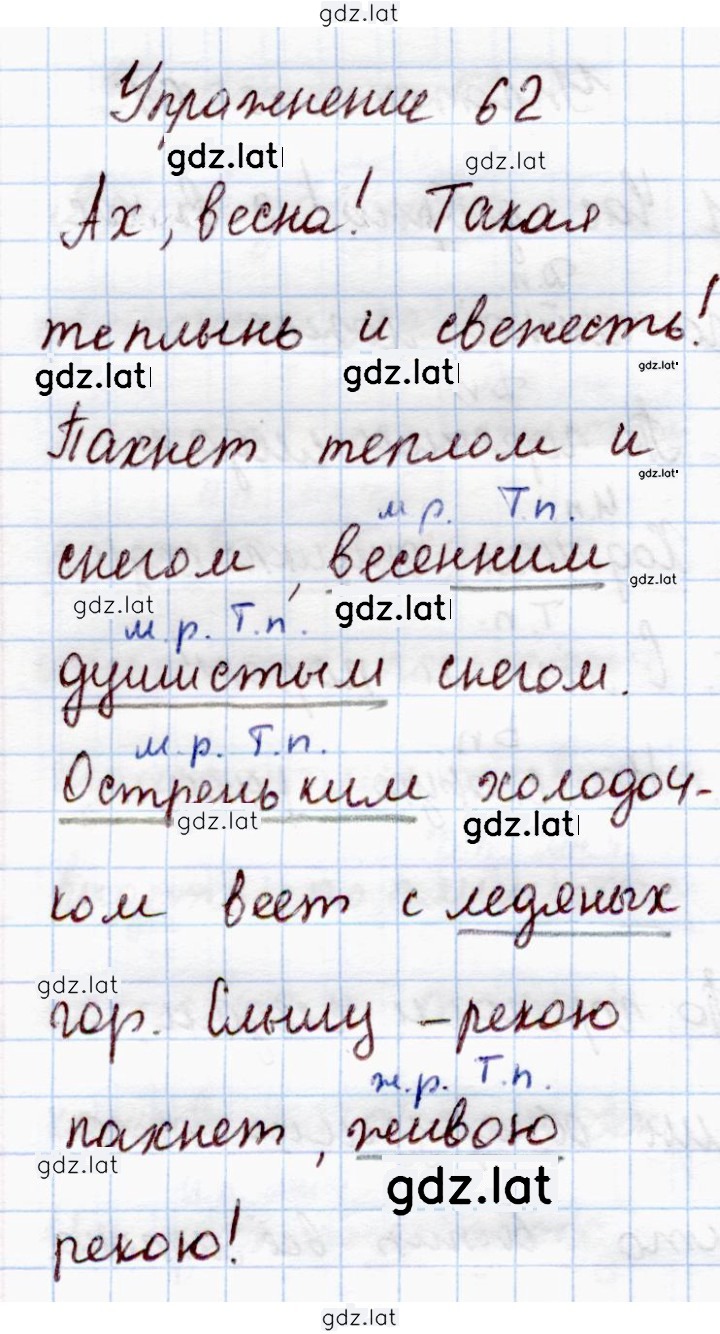 gdz.lat
Упражнение 62
gdz.lat gdz.lat
Ах, весна! Такая
теплынь и свежесть!
gdz.lat gdz.lat gdz.lat
Пахнет теплом и
gdz.lat
м.р. Т.п.
снегом, весенним
gdz.lat gdz.lat gdz.lat
м.р. Т.п.
душистым снегом.
м.р. Т.п.
Остреньким холодоч-
gdz.lat gdz.lat
ком веет с ледяных
gdz.lat
гор. Слышу – рекою
ж.р. Т.п.
пахнет, живою
gdz.lat gdz.lat
рекою!
gdz.lat